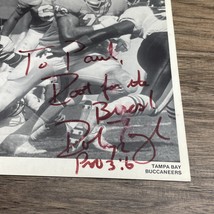 To Paul,
Root for the
Bucs!
Prov 3:6
TAMPA BAY
BUCCANEERS